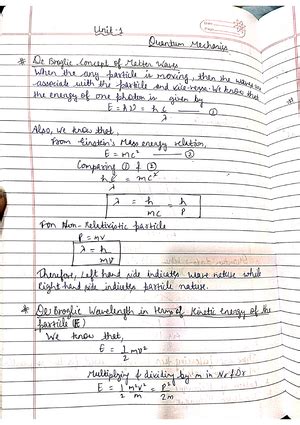 Unit-1
Quantum Mechanics
* De Broglie Concept of Matter Waves
When the any particle is moving, then the waves are
associate with the particle and vice-versa. We know that
the energy of one photon is given by
E = hν = hc/λ —— ①
Also, we know that,
From Einstein's Mass energy relation,
E = mc² —— ②
Comparing ① & ②
hc/λ = mc²
λ = h/mc = h/P
For Non-Relativistic particle
P = mv
λ = h/mv
Therefore, Left hand side indicates wave nature while
Right hand side indicates particle nature.
* De Broglie Wavelength in terms of Kinetic energy of the
particle (E)
We know that,
E = 1/2 mv²
Multiplying & dividing by m in Nr & Dr
E = 1/2 m²v²/m = P²/2m